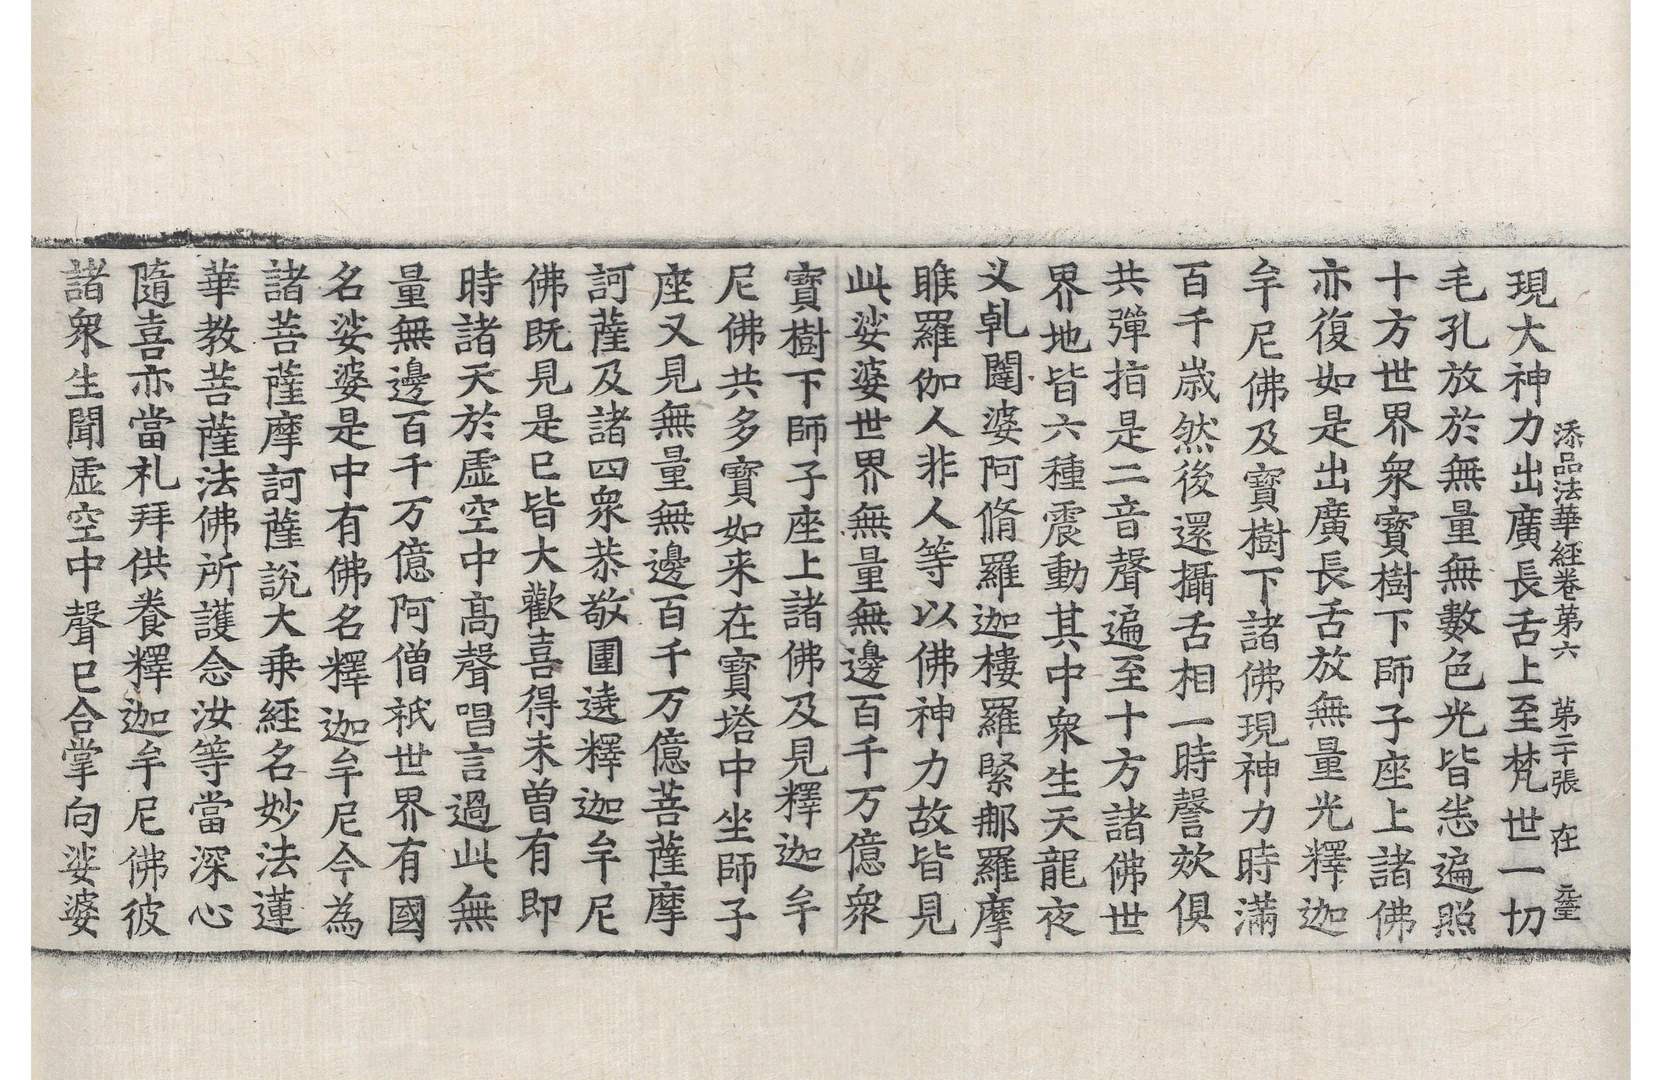 添品法華經卷第六　第二十張　在　元臺
現大神力出廣長舌上至梵世一切
毛孔放於無量無數色光皆悉遍照
十方世界衆寶樹下師子座上諸佛
亦復如是出廣長舌放無量光釋迦
牟尼佛及寶樹下諸佛現神力時滿
百千歲然後還攝舌相一時謦欬俱
共彈指是二音聲遍至十方諸佛世
界地皆六種震動其中衆生天龍夜
叉乹闥婆阿脩羅迦樓羅緊那羅摩
睺羅伽人非人等以佛神力故皆見
此娑婆世界無量無邊百千万億衆
寶樹下師子座上諸佛及見釋迦牟
尼佛共多寶如来在寶塔中坐師子
座又見無量無邊百千万億菩薩摩
訶薩及諸四衆恭敬圍遶釋迦牟尼
佛既見是已皆大歡喜得未曾有即
時諸天於虛空中高聲唱言過此無
量無邊百千万億阿僧祇世界有國
名娑婆是中有佛名釋迦牟尼今為
諸菩薩摩訶薩說大乗經名妙法蓮
華教菩薩法佛所護念汝等當深心
隨喜亦當礼拜供養釋迦牟尼佛彼
諸衆生聞虛空中聲已合掌向娑婆